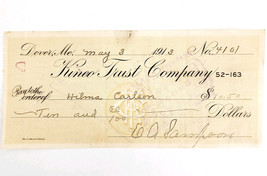 Dover, Me. May 3 1913 No. 4101
Kineo Trust Company 52-163
Pay to the order of Wilma Carlson $10.50
Ten and 50/100 Dollars